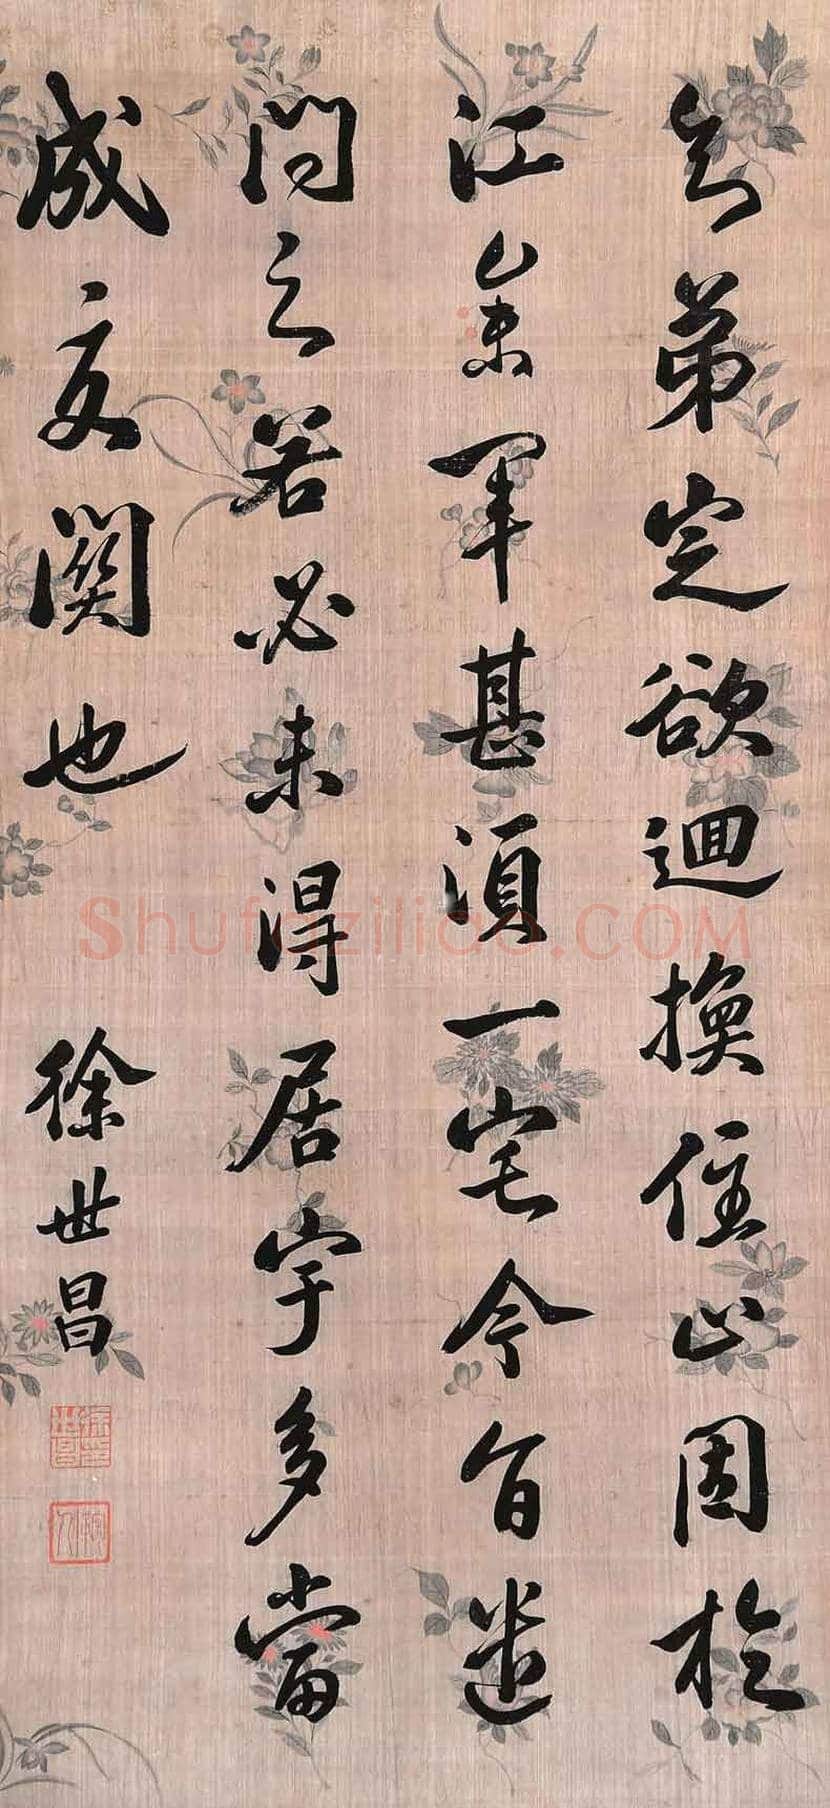 弟定欲迴換住止因於
江參軍甚須一宅今遣
問之若必未得居宇多當
成交關也
徐世昌
Shufaziliao.COM